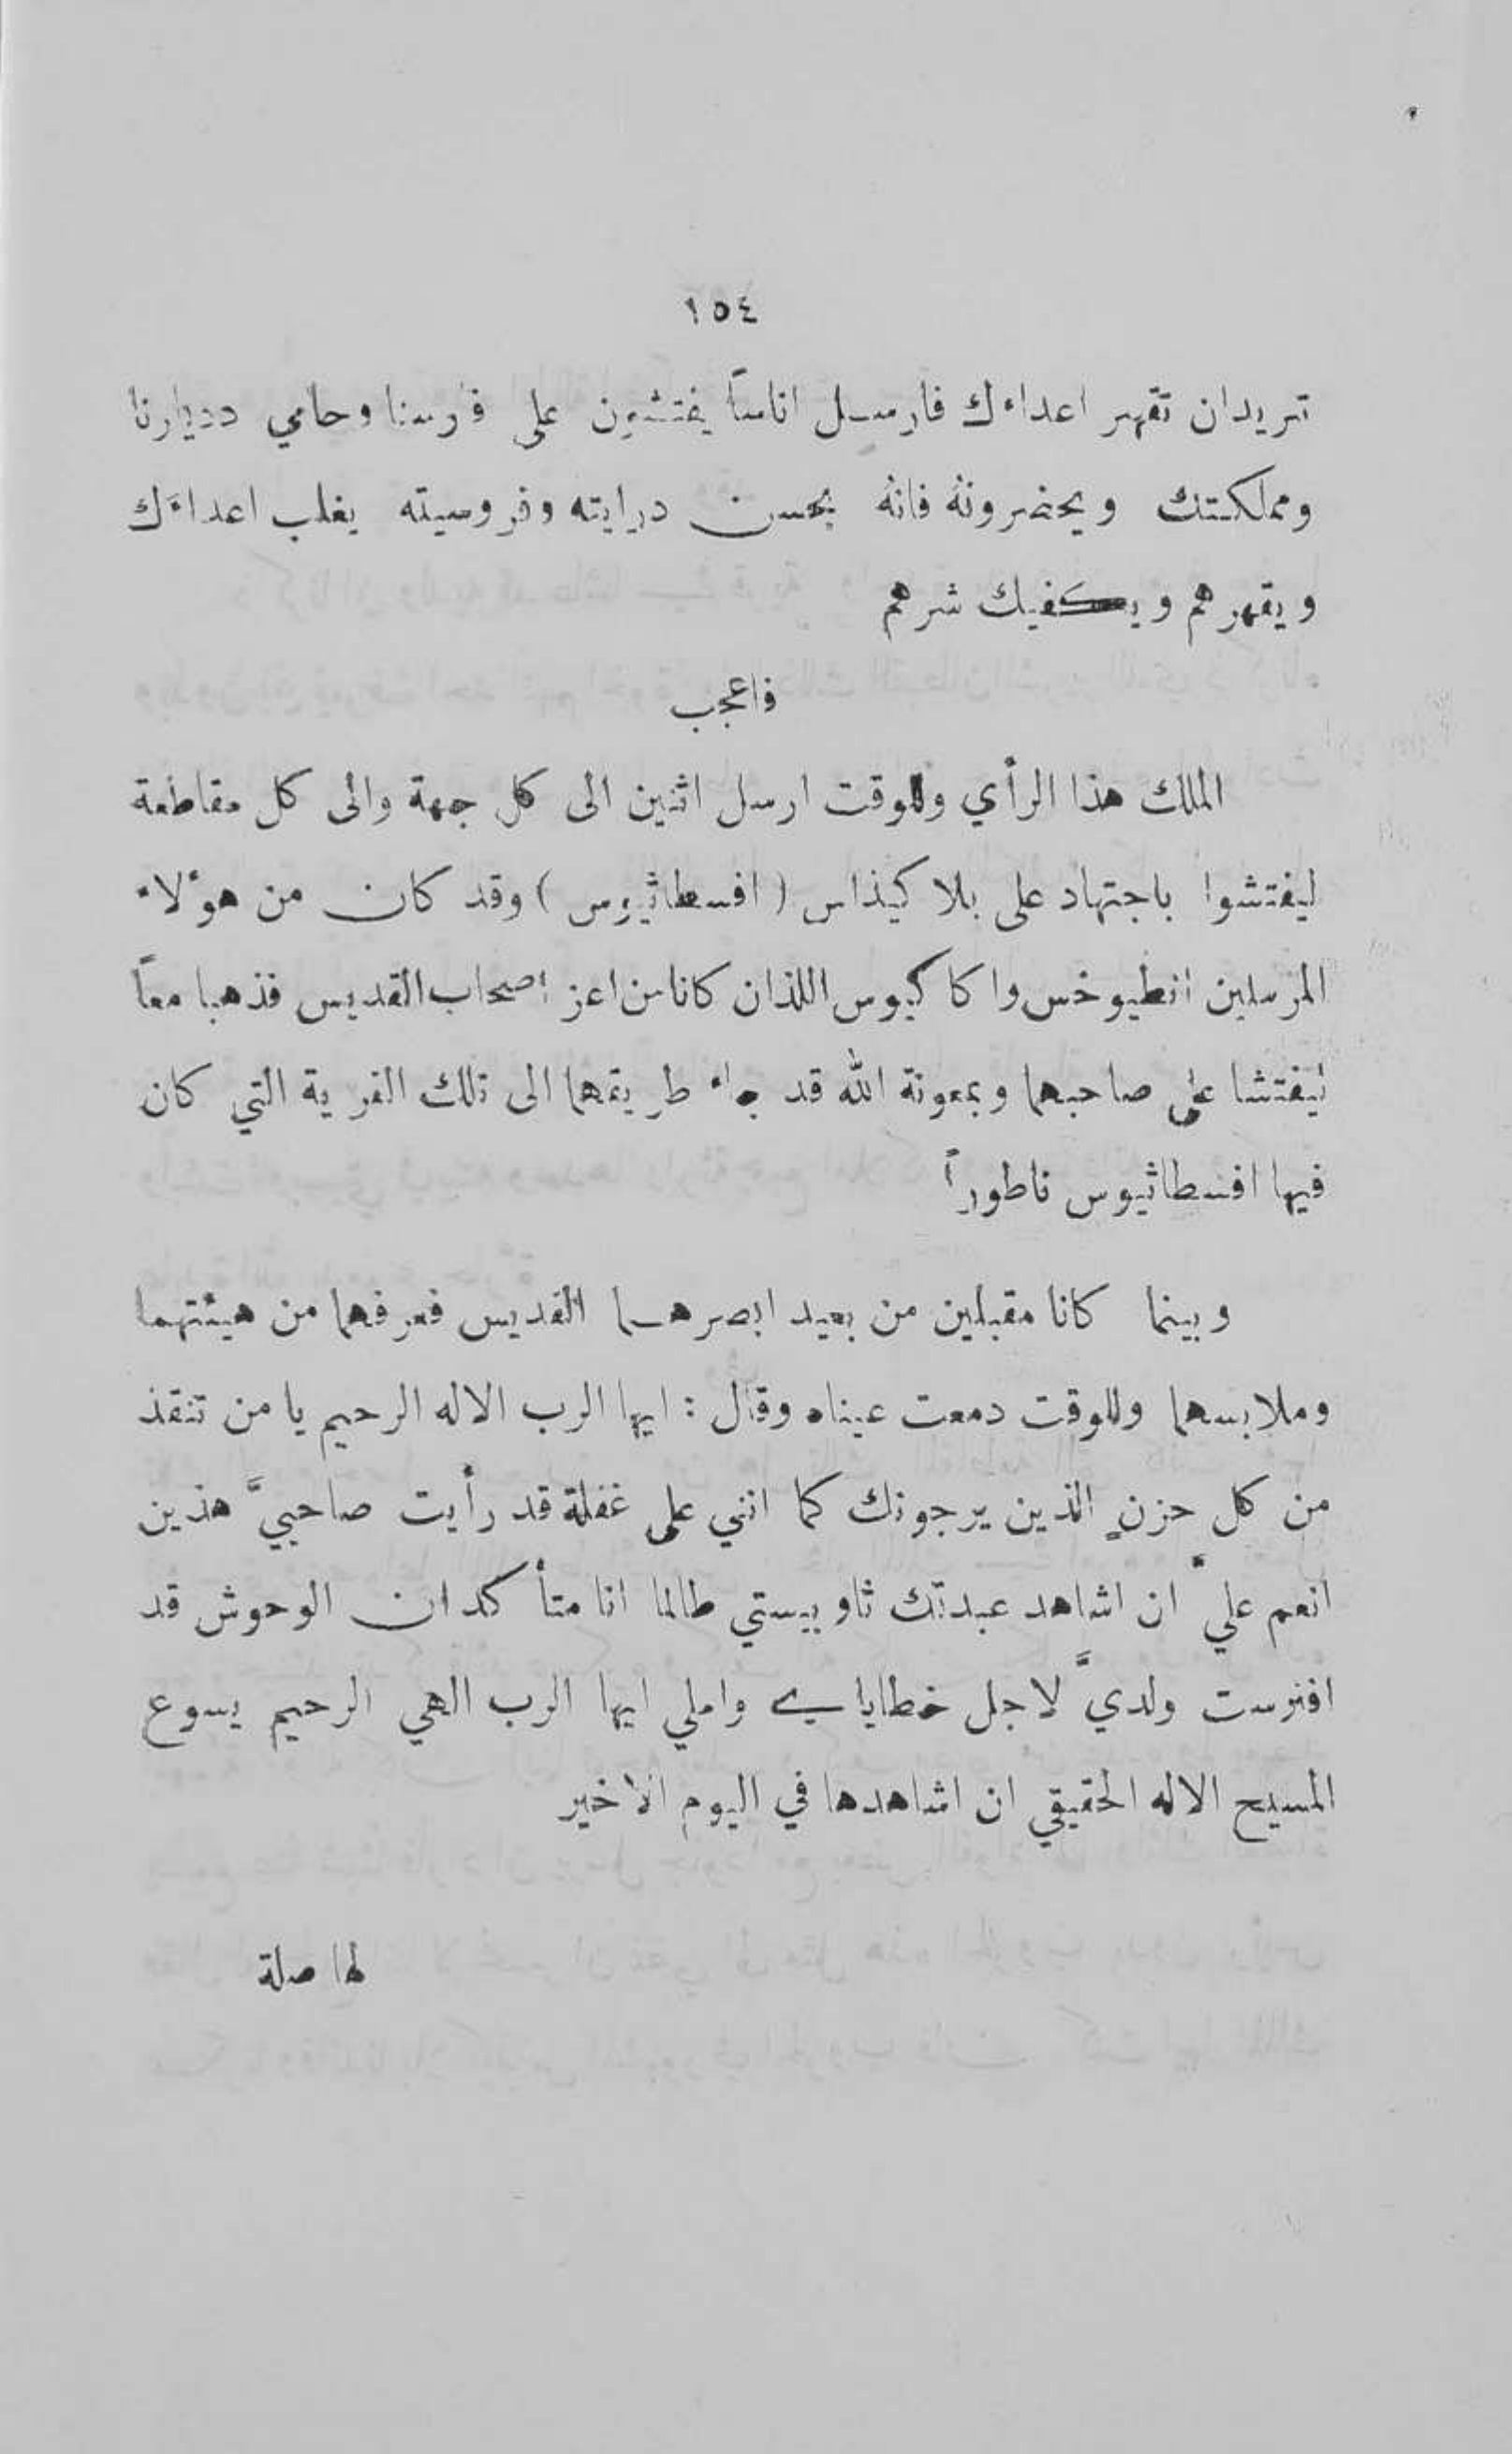 ١٥٤
تريدان تقهر اعداءك فارسل اناساً يفتشون على فارسنا وحامي دديارنا
ومملكتك ويحضرونهُ فانهُ بحسن درايته وفروسيته يغلب اعداءَك
ويقهرهم ويكفيك شرهم
فاعجب
الملك هذا الرأي وللوقت ارسل اثنين الى كل جهة والى كل مقاطعة
ليفتشوا باجتهاد على بلاكيذاس (افسطاثيوس) وقد كان من هوٴلاء
المرسلين انطيوخس واكاكيوس اللذان كانا من اعز اصحاب القديس فذهبا معاً
ليفتشا على صاحبهما وبمعونة الله قد جاء طريقهما الى تلك القرية التي كان
فيها افسطاثيوس ناطوراً
وبينما كانا مقبلين من بعيد ابصرهما القديس فعرفهما من هيئتهما
وملابسهما وللوقت دمعت عيناه وقال : ايها الرب الاله الرحيم يا من تنقذ
من كل حزنٍ الذين يرجونك كما انني على غفلة قد رأيت صاحبيَّ هذين
انعم عليَّ ان اشاهد عبدتك ثاوبيستي طالما انا متأكد ان الوحوش قد
افترست ولديَّ لاجل خطاياي واملي ايها الرب الهي الرحيم يسوع
المسيح الاله الحقيقي ان اشاهدها في اليوم الاخير
لها صلة